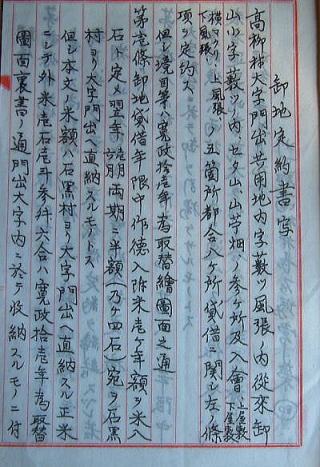 卸地定約書写
高柳村大字門出共用地内字藪ツ風張ノ内従来卸
山小字藪ツノ内、セタ山、山苧畑、ノ参ケ所及入會
上屋敷下屋敷
横マクリ、上風張、下風張、五箇所都合八ケ所貸借ニ関シ左ノ條
項ヲ定約ス
但シ境界等ハ寛政拾壱年為取替繪圖面之通
第壱條卸地貸借年限中作徳入弥米壱ケ年額ヲ米八
石ト定メ翌年 両期ニ半額(乃ケ四石)宛ヲ石黒
村ヨリ大字門出ヘ直納スルモノトス
但シ本文ノ米額ハ石黒村ヨリ大字門出ヘ直納スル正米
ニシテ外米壱石壱斗参升六合ハ寛政拾壱年為取替
圖面裏書ノ通門出大字内ニ於テ収納スルモノニ付